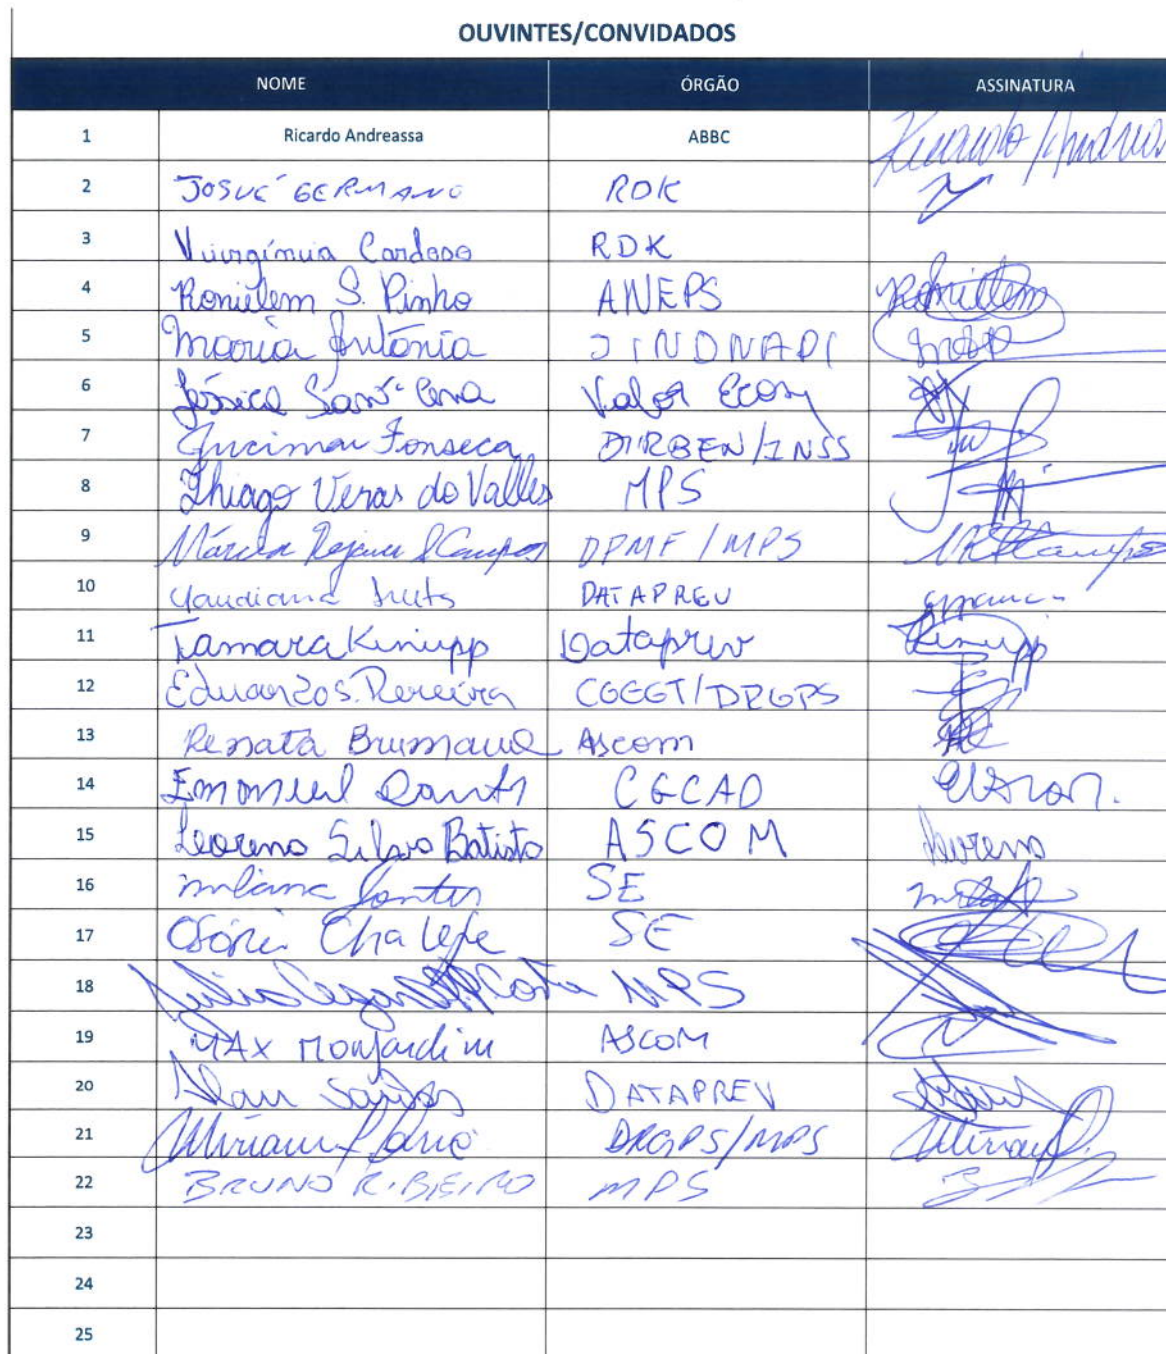 OUVINTES/CONVIDADOS
NOME ÓRGÃO ASSINATURA
1 Ricardo Andreassa ABBC Ricardo Andreas
2 JOSUÉ GERMANO RDK
3 Viirgínia Cardoso RDK
4 Ronielem S. Pinho ANEPS Roniellem
5 Maria Antônia SINDNAPI
6 Jéssica Sant'Ana Valor Econ
7 Jucimar Fonseca DIRBEN/INSS
8 Thiago Veras do Valles MPS
9 Márcia Rejane S Campos DPMF/MPS
10 DATAPREV
11 Tamara Kiniupp Dataprev Kinupp
12 Eduardo S. Pereira CGEGT/DRGPS
13 Renata Brumana Ascom
14 Emanuel Dantas CGCAD
15 Lorena Silva Batista ASCOM Lorena
16 Santos SE
17 Osório Chalefe SE
18 Julio Cezar Costa MPS
19 MAX Monjardim ASCOM
20 Alan Santos DATAPREV
21 Miriam DRGPS/MPS Miriam
22 BRUNO RIBEIRO MPS
23
24
25